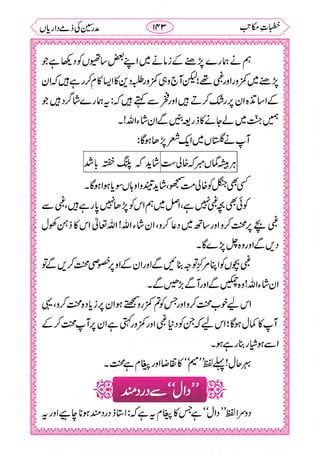 خطباتِ مکاتب ۱۴۳ مدرسین کی ذمے داریاں
ہم نے ہمارے پڑھنے کے زمانے میں اپنے بعض ساتھیوں کو دیکھا ہے جو
پڑھنے میں کمزور اور غبی تھے؛ لیکن آج وہی کمزور طلبہ دین کا ایسا کام کر رہے ہیں کہ ان
کے اساتذہ ان پر رشک کرتے ہیں اور فخر سے کہتے ہیں کہ: یہ ہمارے شاگرد ہیں جو
ہمیں جنت میں لے جانے کا ذریعہ بنیں گے ان شاء اللہ!۔
آپ نے گلستاں میں ایک شعر پڑھا ہوگا:
ہر بیشہ گماں مبر کہ خالی ست شاید کہ پلنگ خفتہ باشد
کسی بھی جنگل کو خالی مت سمجھو، شاید تیندوا وہاں سویا ہوا ہو۔
کوئی بھی بچہ غبی نہیں ہے، اصل میں ہم اس کو پڑھا نہیں پا رہے ہیں، غبی سے
غبی بچے پر محنت کرو اور ساتھ میں دعا کرو، ان شاء اللہ! اللہ تعالیٰ اس کا ذہن کھول
دیں گے اور وہ چل پڑے گا۔
غبی بچوں کو اپنا مرکزِ توجہ بنائیں گے اور ان کے اوپر خصوصی محنت کریں گے تو
ان شاء اللہ! وہ سیکھیں گے اور آگے بڑھیں گے۔
اس لیے خوب محنت کرو، جس کو تم کمزور سمجھتے ہو ان پر زیادہ محنت کرو، یہی
آپ کا کمال ہوگا؛ اس لیے کہ جس کو دنیا غبی اور کمزور کہتی ہے ان پر آپ محنت کر کے
اسے ہوشیار بنا رہے ہو۔
بہر حال! پہلے لفظ ’’میم‘‘ کا تقاضا اور پیغام ہے محنت۔
’’دال‘‘ سے درد مند
دوسرا لفظ ’’دال‘‘ ہے جس کا پیغام یہ ہے کہ: استاذ درد مند ہونا چاہیے اور یہ